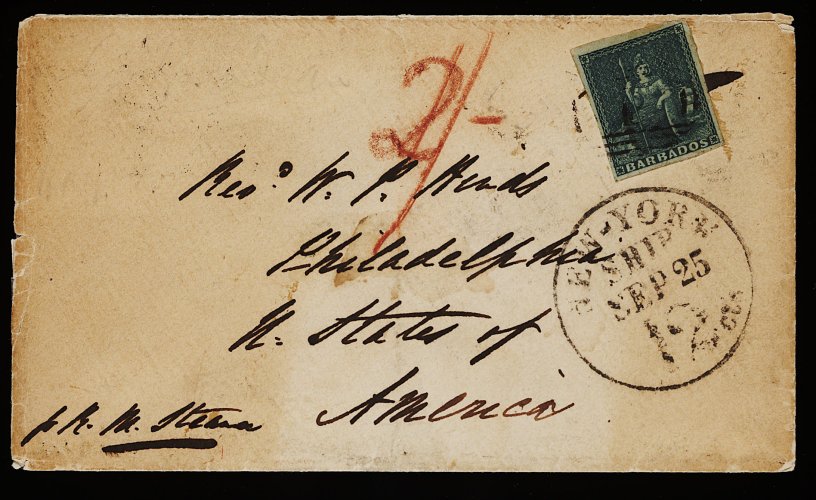 2/-
BARBADOS
NEW-YORK
SHIP
SEP 25
Revd W. P. Hinds
Philadelphia
U. States of
America
p R. M. Steamer